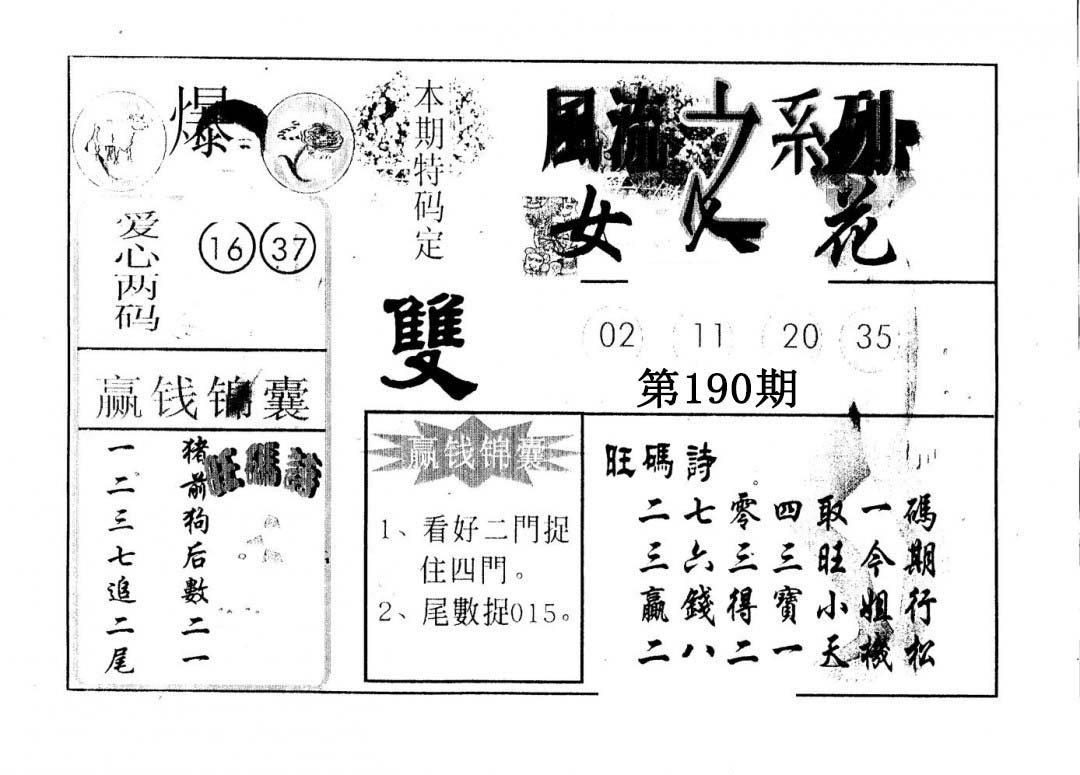 爆
本期特码定
雙
風流之系列
女人花
爱心两码
16 37
02 11 20 35
第190期
赢钱锦囊
一二三七追二尾
猪前狗后數二一
旺碼詩
赢钱锦囊
1、看好二門捉
住四門。
2、尾數捉015。
旺碼詩
二七零四取一碼
三六三三旺今期
贏錢得寶小姐行
二八二一天機松